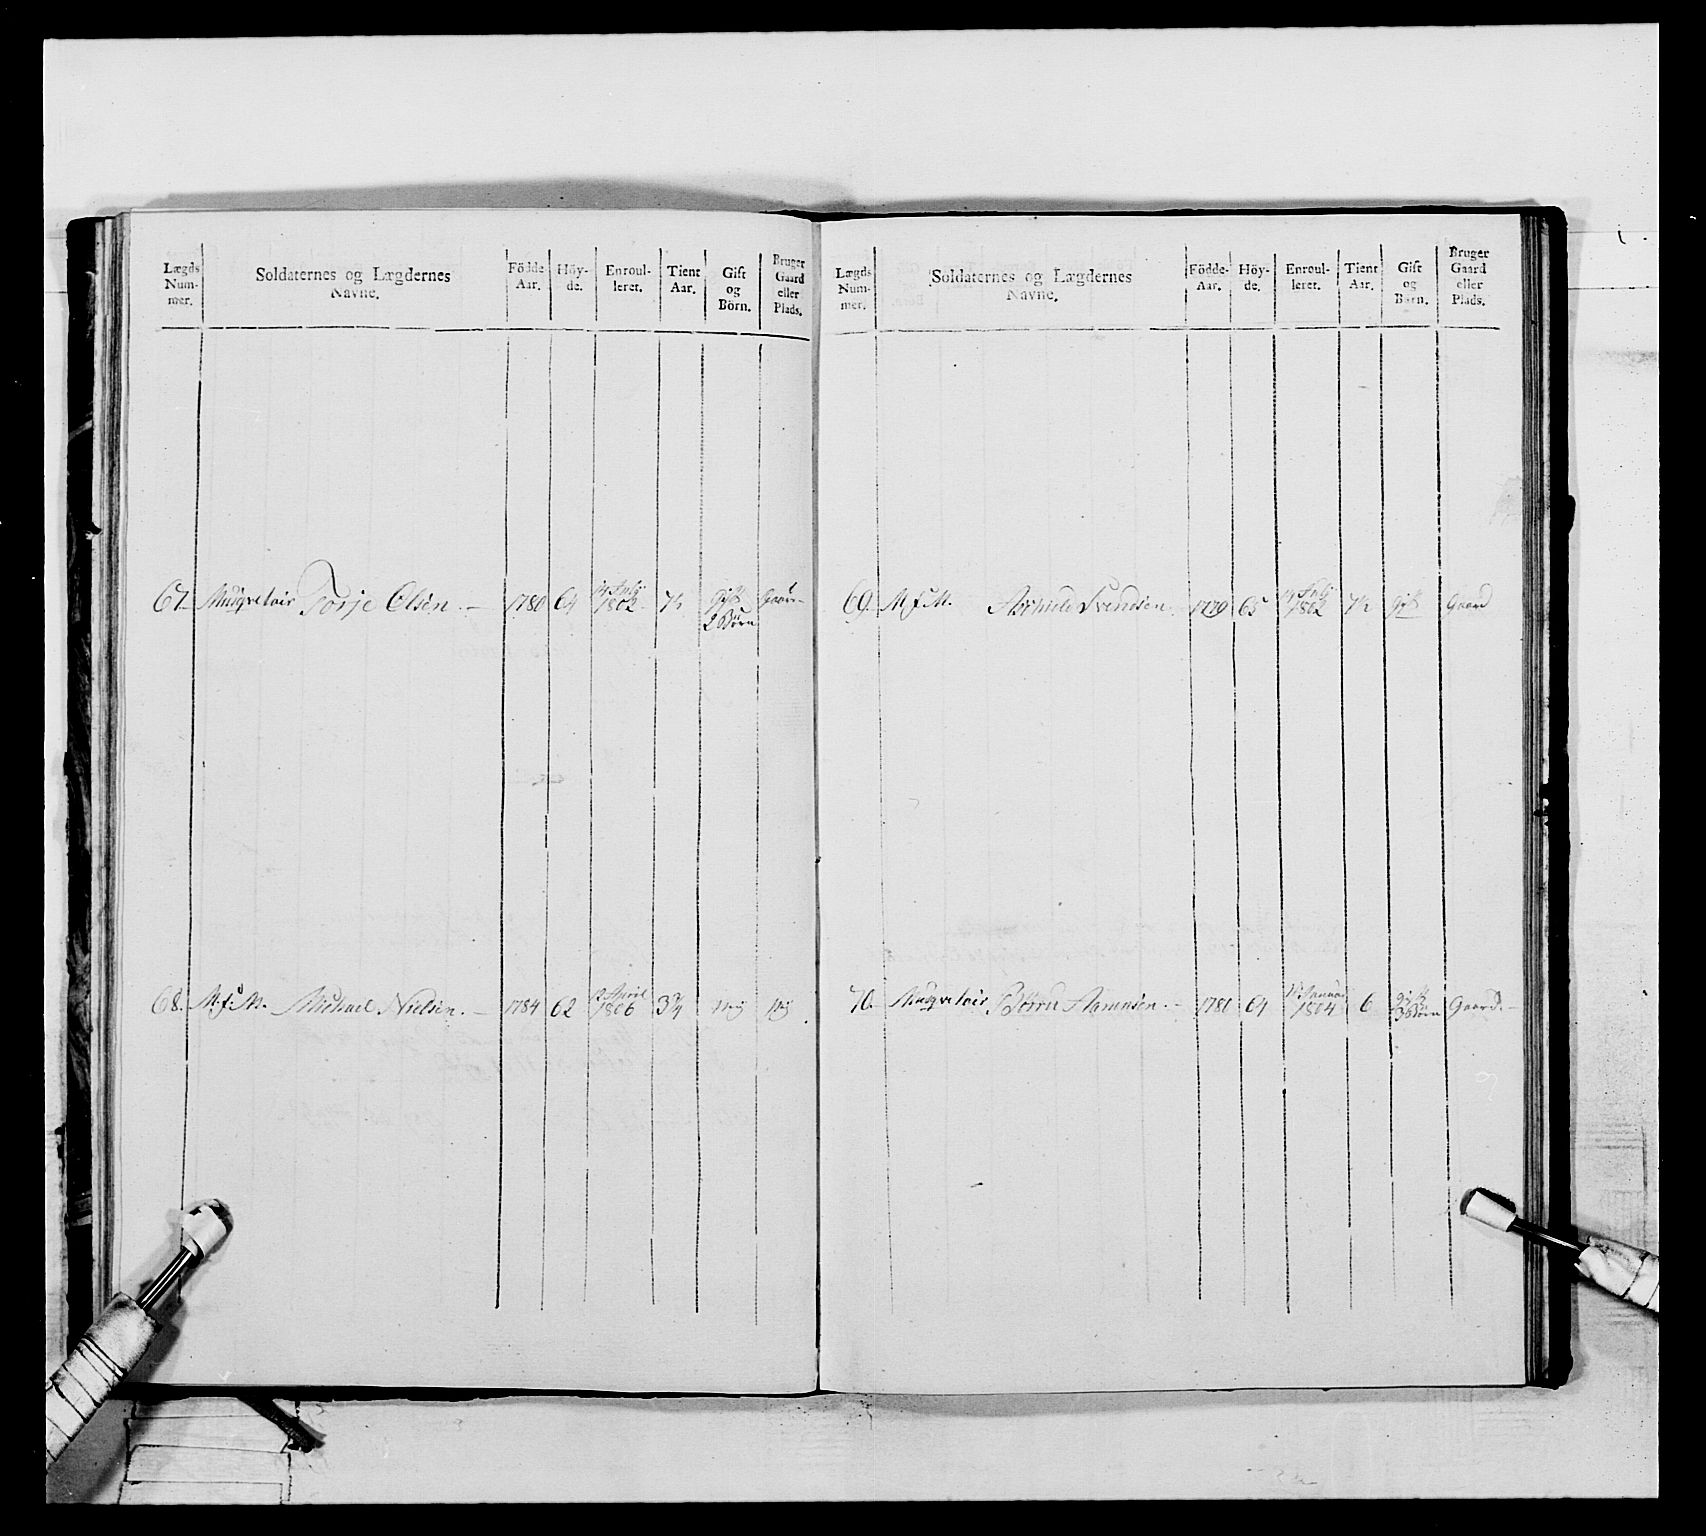 Lægds Num- mer.
Soldaternes og Lægdernes Navne.
Födde Aar.
Höy- de.
Enroul- leret.
Tient Aar.
Gift og Börn.
Bruger Gaard eller Plads.
67. Musqveteir Torje Olsen. — 1780 64 1802 7½ Gift 2 Börn Gaard
68. Michael Nielsen. — 1784 62 April 1806 3¾ Nej Nej
Lægds Num- mer.
Soldaternes og Lægdernes Navne.
Födde Aar.
Höy- de.
Enroul- leret.
Tient Aar.
Gift og Börn.
Bruger Gaard eller Plads.
69. Svendsen. 1779 65 1802 7½ Gift Gaard
70. Musqveteir Aanensen. — 1780 64 Januar 1804 6 Gift 3 Börn Gaard. —